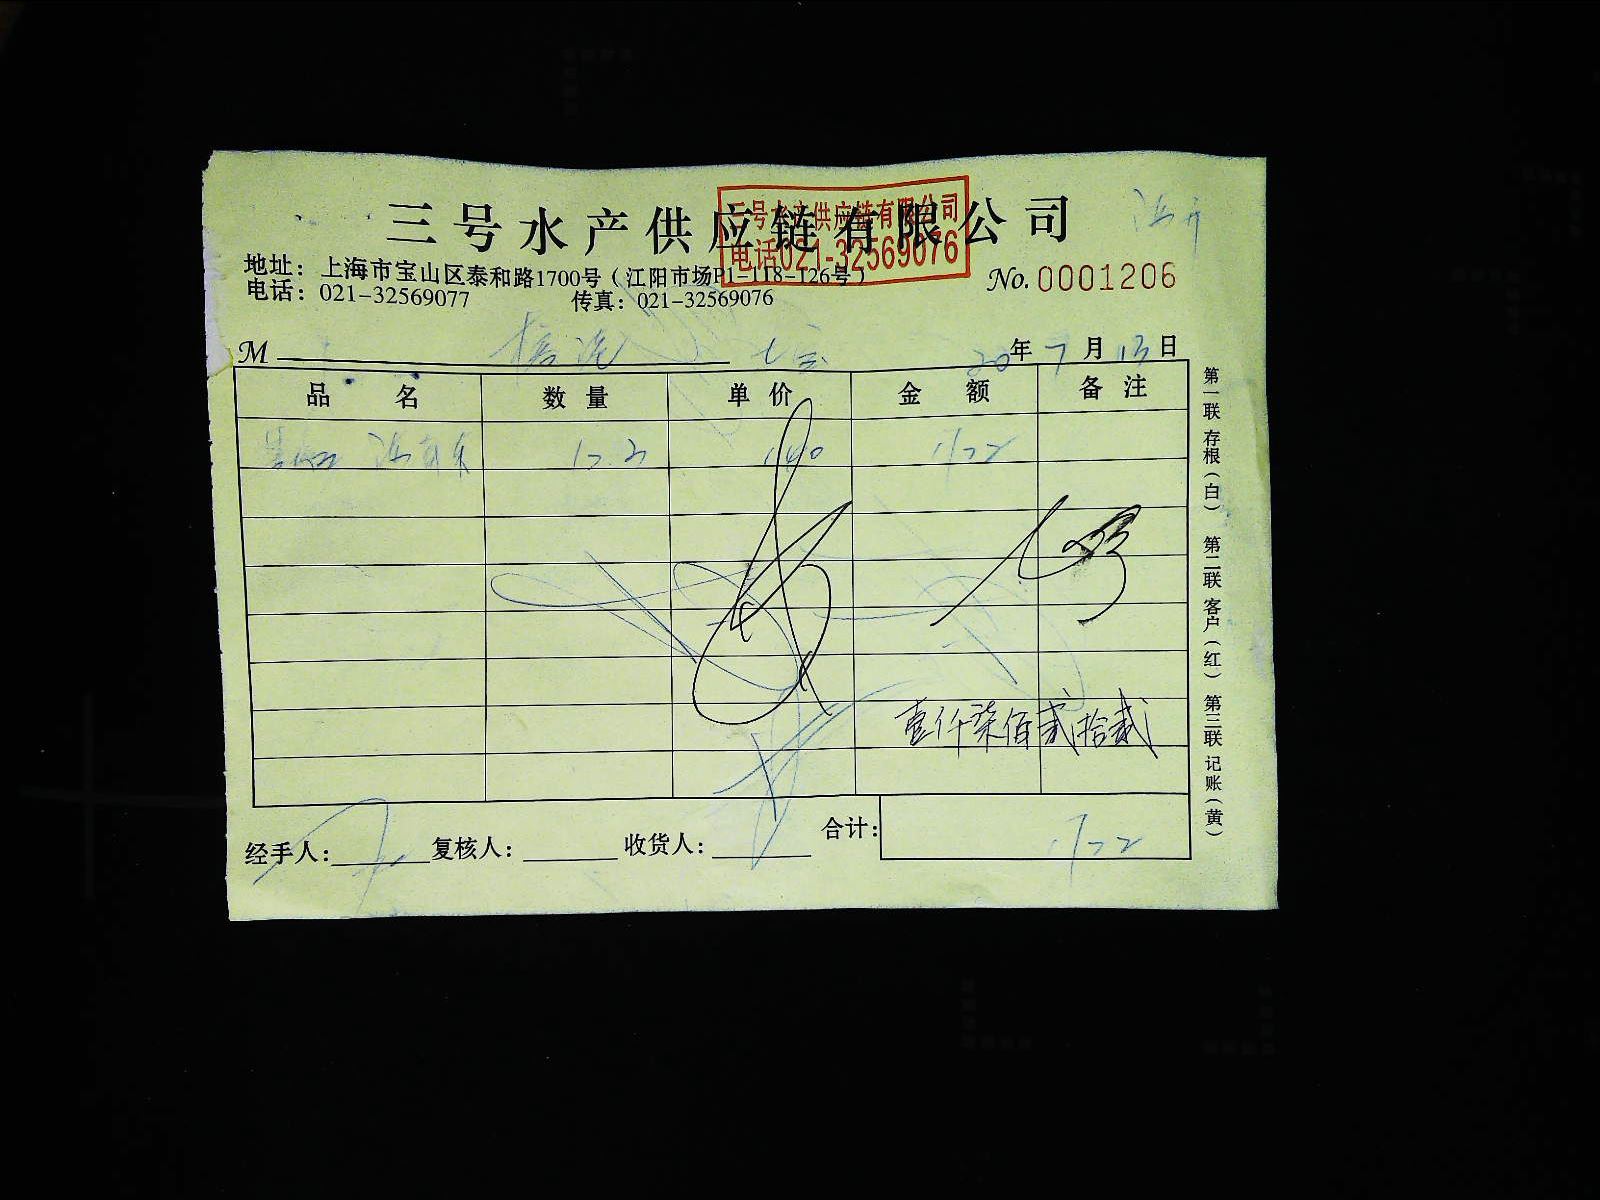 三号水产供应链有限公司
三号水产供应链有限公司
电话021-32569076
地址：上海市宝山区泰和路1700号（江阳市场P1-118-126号）
电话：021-32569077 传真：021-32569076
No.0001206
M 20年7月13日
品名 数量 单价 金额 备注
140 1722
壹仟柒佰贰拾贰
经手人： 复核人： 收货人： 合计： 1722
第一联 存根（白） 第二联 客户（红） 第三联 记账（黄）